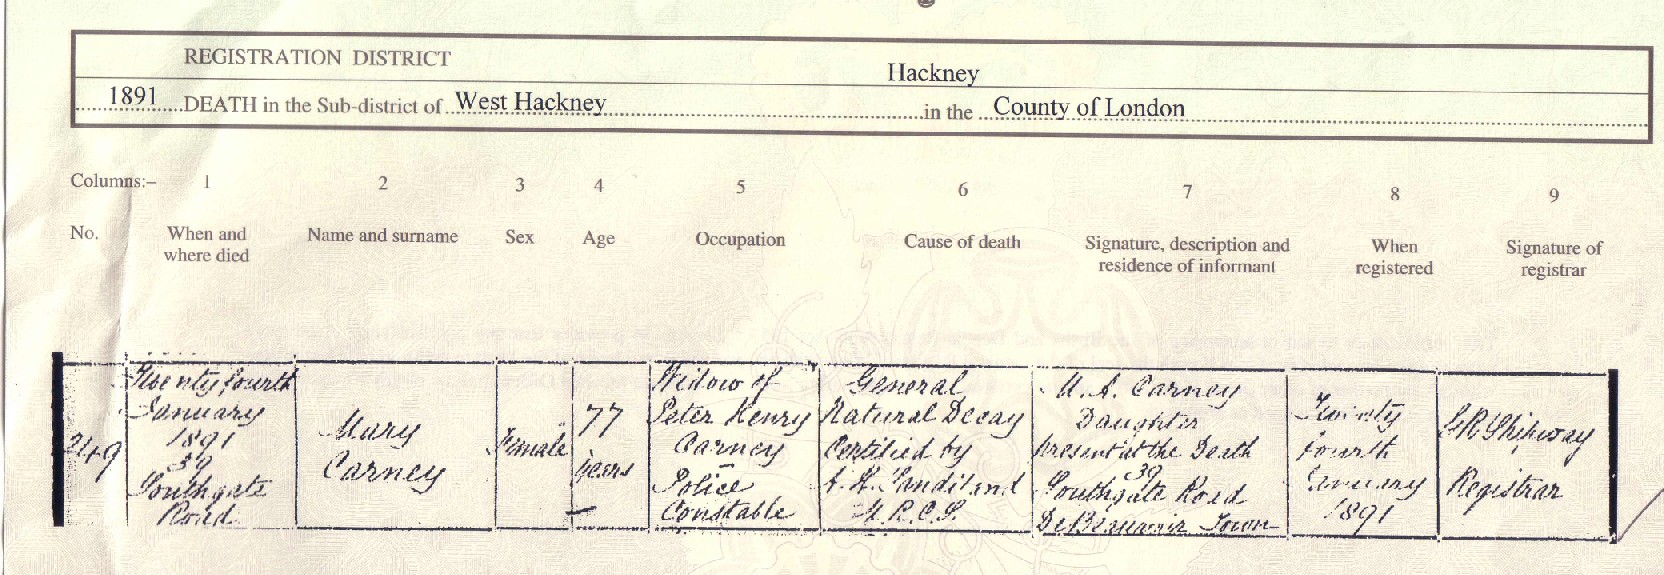 REGISTRATION DISTRICT Hackney
1891 DEATH in the Sub-district of West Hackney in the County of London
Columns:- 1 2 3 4 5 6 7 8 9
No.
When and
where died
Name and surname
Sex
Age
Occupation
Cause of death
Signature, description and
residence of informant
When
registered
Signature of
registrar
249
Twenty fourth
January
1891
39
Southgate
Road
Mary
Carney
Female
77
years
Widow of
Peter Henry
Carney
Police
Constable
General
Natural Decay
Certified by
M.R.C.S.
M. A. Carney
Daughter
Present at the Death
39
Southgate Road
De Beauvoir Town
Twenty
Fourth
January
1891
Shipway
Registrar